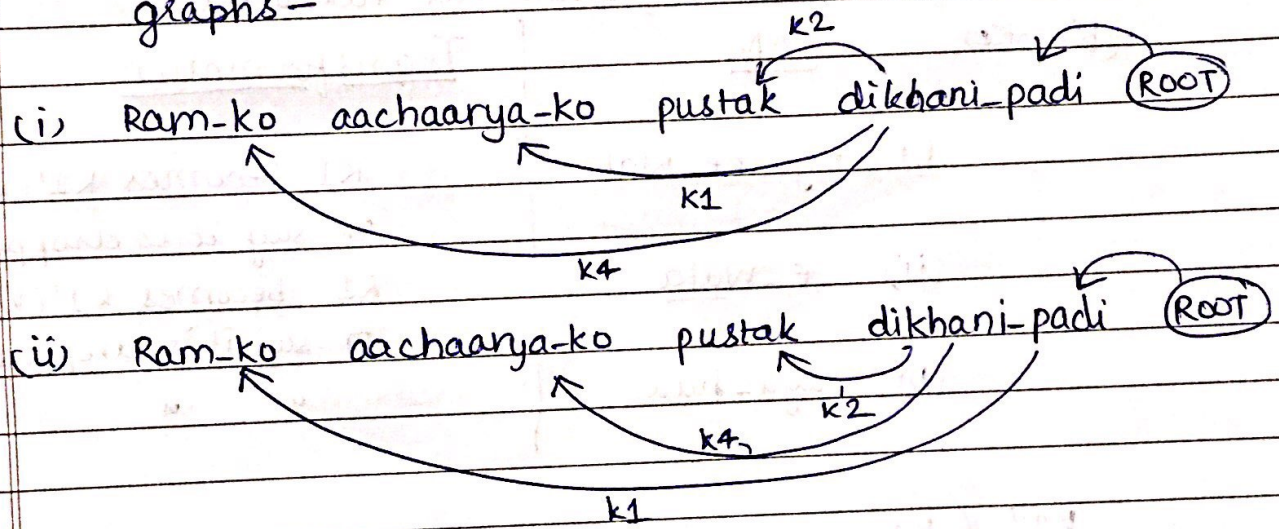 graphs-
k2
(i) Ram-ko aachaarya-ko pustak dikhani-padi ROOT
k1
k4
(ii) Ram-ko aachaarya-ko pustak dikhani-padi ROOT
k2
k4
k1